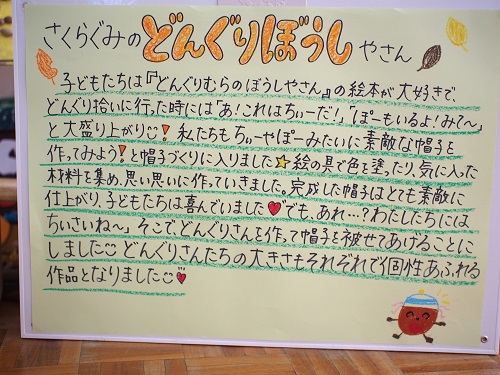 さくらぐみのどんぐりぼうしやさん
子どもたちは『どんぐりむらのぼうしやさん』の絵本が大好きで、
どんぐり拾いに行った時には「あ!これはちぃーだ!」「ぽーもいるよ!みて〜」
と大盛り上がり☺!私たちもちぃーやぽーみたいに素敵な帽子を
作ってみよう!と帽子づくりに入りました☆絵の具で色を塗ったり、気に入った
材料を集め、思い思いに作っていきました。完成した帽子はとても素敵に
仕上がり、子どもたちは喜んでいました♥でも、あれ…?わたしたちにはち
ちいさいね〜。そこで、どんぐりさんを作って帽子を被せてあげることに
しました☺どんぐりさんたちの大きさもそれぞれで個性あふれる
作品となりました☺♥